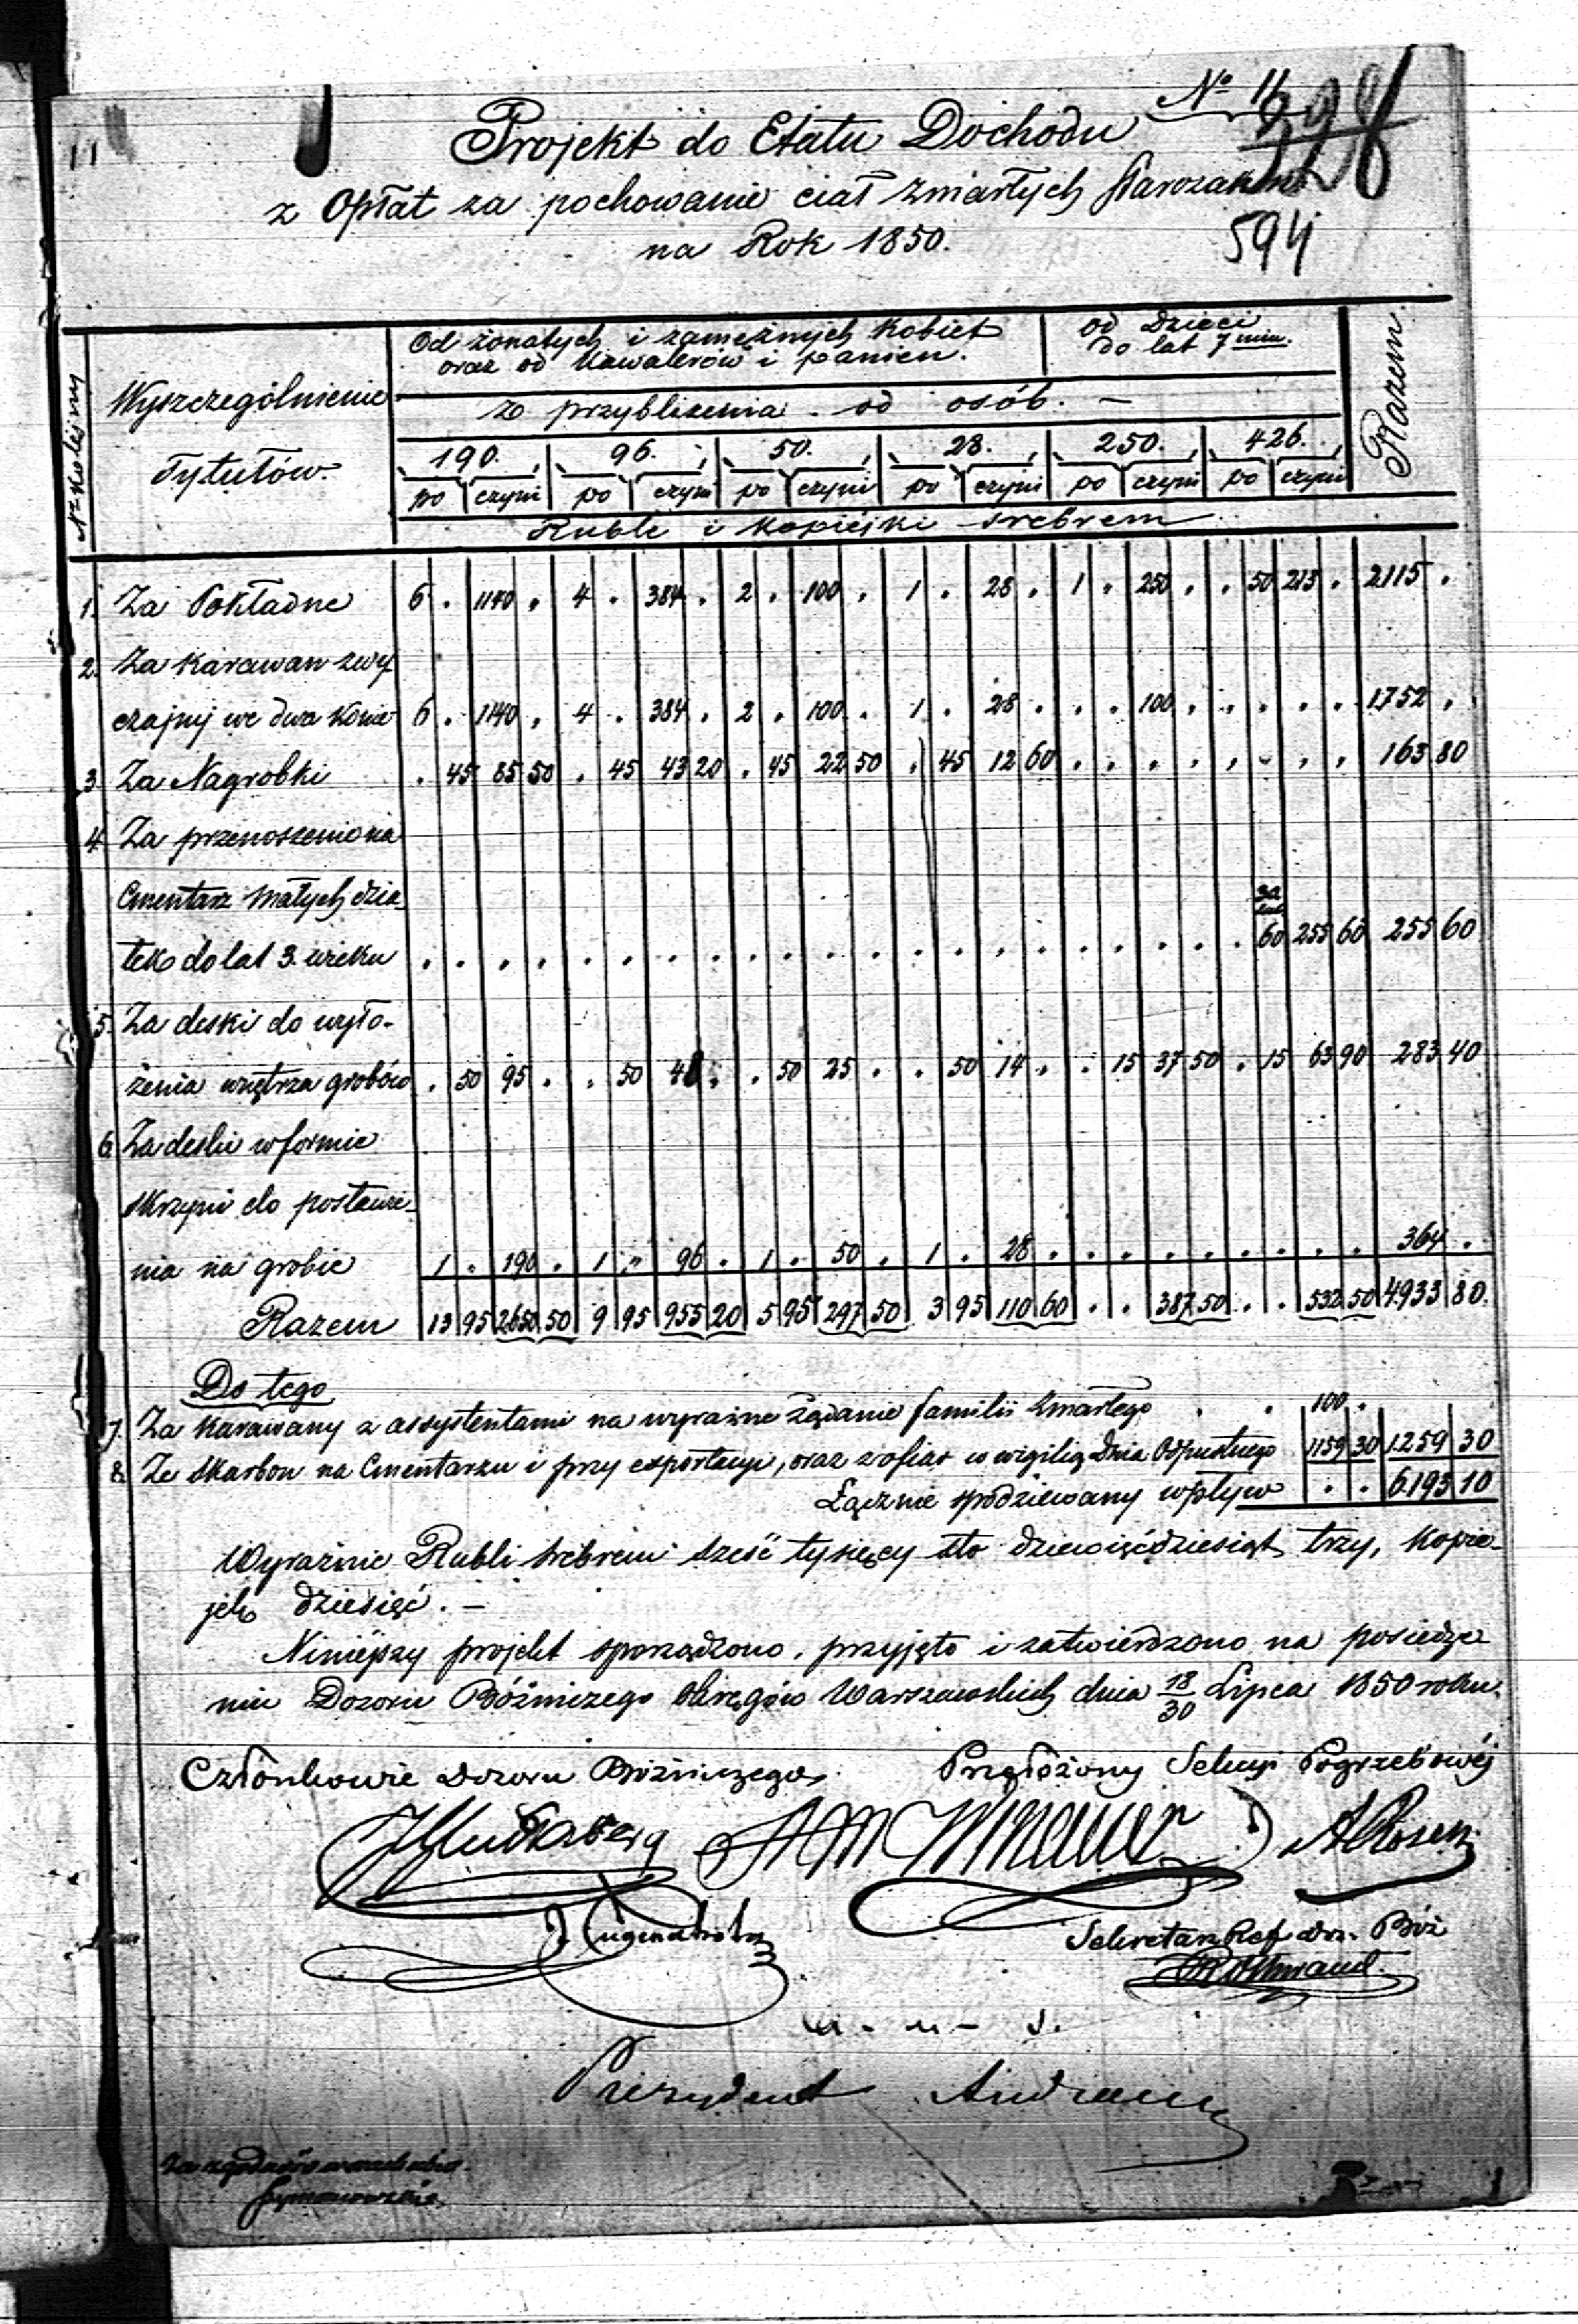 11
№ 11
Projekt do Etatu Dochodu
z Opłat za pochowanie ciał zmarłych Starozak
594
na Rok 1850.
№ kolejny
Wyszczególnienie
Tytułów.
Od żonatych i zamężnych Kobiet
oraz od Kawalerów i panien.
od Dzieci
do lat 7miu.
Razem.
z przybliżenia - od osób. -
190. 96. 50. 28. 250. 426.
po czyni po czyni po czyni po czyni po czyni po czyni
Ruble i Kopiejki srebrem
1. Za Pokładne 6 . 1140 . 4 . 384 . 2 . 100 . 1 . 28 . 1 . 250 . . 50 213 . 2115 .
2. Za Karawan zwy
czajny we dwa konie 6 . 1140 . 4 . 384 . 2 . 100 . 1 . 28 . . . 100 . . . . . 1752 .
3. Za Nagrobki . 45 85 50 . 45 43 20 . 45 22 50 . 45 12 60 . . . . . . . . 163 80
4. Za przenoszenie na
Cmentarz małych dzia
tek do lat 3. wieku . . . . . . . . . . . . . . . . . . . . . 60 255 60 255 60
5. Za deski do wyło-
żenia wnętrza grobów . 50 95 . . 50 48 . . 50 25 . . 50 14 . . 15 37 50 . 15 63 90 283 40
6. Za deski w formie
skrzyni do postawie-
nia na grobie 1 . 190 . 1 " 96 . 1 . 50 . 1 . 28 . . . . . . . . . 364 .
Razem 13 95 2650 50 9 95 955 20 5 95 297 50 3 95 110 60 . . 387 50 . . 532 50 4933 80.
Do tego
7. Za Karawany z assystentami na wyraźne żądanie familii Zmarłego . . 100 .
8. Ze Skarbon na Cmentarzu i przy exportacyi, oraz z ofiar w wigilią Dnia Odpustnego 1159 30 1259 30
Łącznie spodziewany wpływ . . 6193 10
Wyraźnie Rubli srebrem sześć tysięcy sto dziewięćdziesiąt trzy, Kopie-
jek dziesięć. -
Niniejszy projekt sporządzono, przyjęto i zatwierdzono na posiedze
niu Dozoru Bóźniczego Okręgów Warszawskich dnia 18/30 Lipca 1850 roku.
Członkowie Dozoru Bóźniczego
Przełożony Sekcyi Pogrzebowéj
A Rosen
Sekretarz Ref. doz. Bóż
Rothwand
Prezydent
Za zgodność